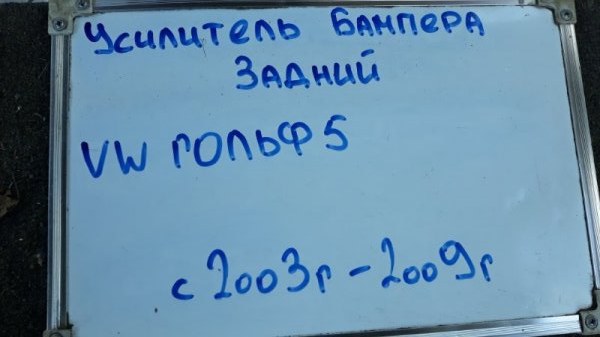 Усилитель Бампера
Задний
VW ГОЛЬФ 5
с 2003г - 2009г